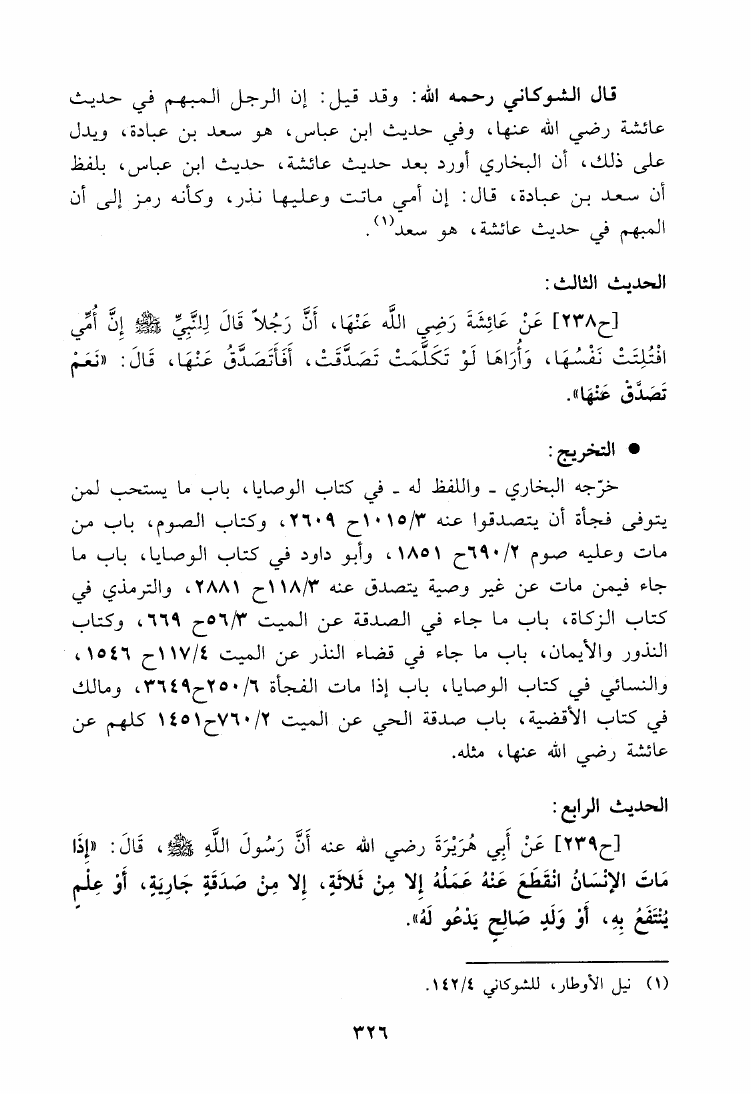 قال الشوكاني رحمه الله: وقد قيل: إن الرجل المبهم في حديث
عائشة رضي الله عنها، وفي حديث ابن عباس، هو سعد بن عبادة، ويدل
على ذلك، أن البخاري أورد بعد حديث عائشة، حديث ابن عباس، بلفظ
أن سعد بن عبادة، قال: إن أمي ماتت وعليها نذر، وكأنه رمز إلى أن
المبهم في حديث عائشة، هو سعد(١).
الحديث الثالث:
[ح٢٣٨] عَنْ عَائِشَةَ رَضِي اللَّه عَنْهَا، أَنَّ رَجُلاً قَالَ لِلنَّبِيِّ ﷺ إِنَّ أُمِّي
افْتُلِتَتْ نَفْسُهَا، وَأُرَاهَا لَوْ تَكَلَّمَتْ تَصَدَّقَتْ، أَفَأَتَصَدَّقُ عَنْهَا، قَالَ: «نَعَمْ
تَصَدَّقْ عَنْهَا».
● التخريج:
خرّجه البخاري ـ واللفظ له ـ في كتاب الوصايا، باب ما يستحب لمن
يتوفى فجأة أن يتصدقوا عنه ١٠١٥/٣ح ٢٦٠٩، وكتاب الصوم، باب من
مات وعليه صوم ٦٩٠/٢ح ١٨٥١، وأبو داود في كتاب الوصايا، باب ما
جاء فيمن مات عن غير وصية يتصدق عنه ١١٨/٣ح ٢٨٨١، والترمذي في
كتاب الزكاة، باب ما جاء في الصدقة عن الميت ٥٦/٣ح ٦٦٩، وكتاب
النذور والأيمان، باب ما جاء في قضاء النذر عن الميت ١١٧/٤ح ١٥٤٦،
والنسائي في كتاب الوصايا، باب إذا مات الفجأة ٢٥٠/٦ح٣٦٤٩، ومالك
في كتاب الأقضية، باب صدقة الحي عن الميت ٧٦٠/٢ح١٤٥١ كلهم عن
عائشة رضي الله عنها، مثله.
الحديث الرابع:
[ح٢٣٩] عَنْ أَبِي هُرَيْرَةَ رضي الله عنه أَنَّ رَسُولَ اللَّهِ ﷺ، قَالَ: «إِذَا
مَاتَ الإِنْسَانُ انْقَطَعَ عَنْهُ عَمَلُهُ إِلا مِنْ ثَلاثَةٍ، إِلا مِنْ صَدَقَةٍ جَارِيَةٍ، أَوْ عِلْمٍ
يُنْتَفَعُ بِهِ، أَوْ وَلَدٍ صَالِحٍ يَدْعُو لَهُ».
(١) نيل الأوطار، للشوكاني ١٤٢/٤.
٣٢٦